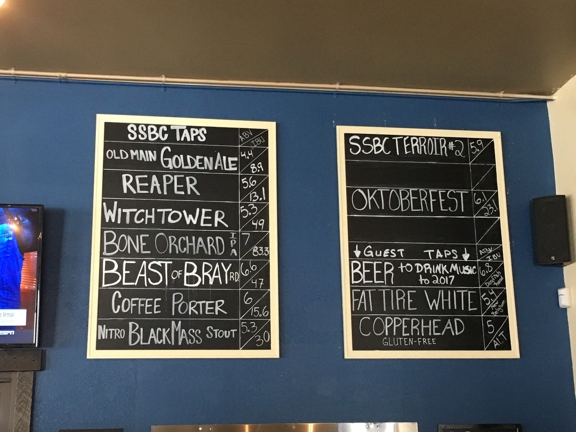 SSBC TAPS ABV/IBU
OLD MAIN GOLDEN ALE 4.4/8.9
REAPER 5.6/13.1
WITCHTOWER 5.3/49
BONE ORCHARD IPA 7/83.3
BEAST OF BRAY RD 6.6/47
COFFEE PORTER 6/15.6
NITRO BLACK MASS STOUT 5.3/30
SSBC TERROIR #2 5.9
OKTOBERFEST
↓ GUEST TAPS ↓ ABV/IBU
BEER TO DRINK MUSIC
TO 2017 6.8
FAT TIRE WHITE
COPPERHEAD 5/ALT
GLUTEN-FREE
ESPN